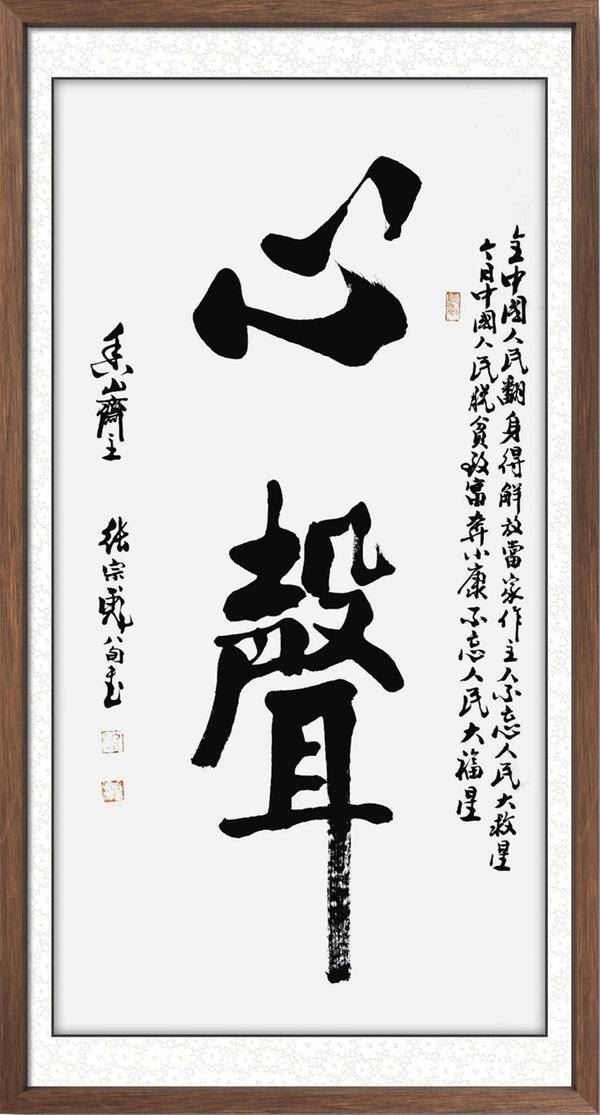 全中國人民翻身得解放當家作主人不忘人民大救星
今日中國人民脫貧致富奔小康不忘人民大福星
心聲
山齋主 張宗八旬書